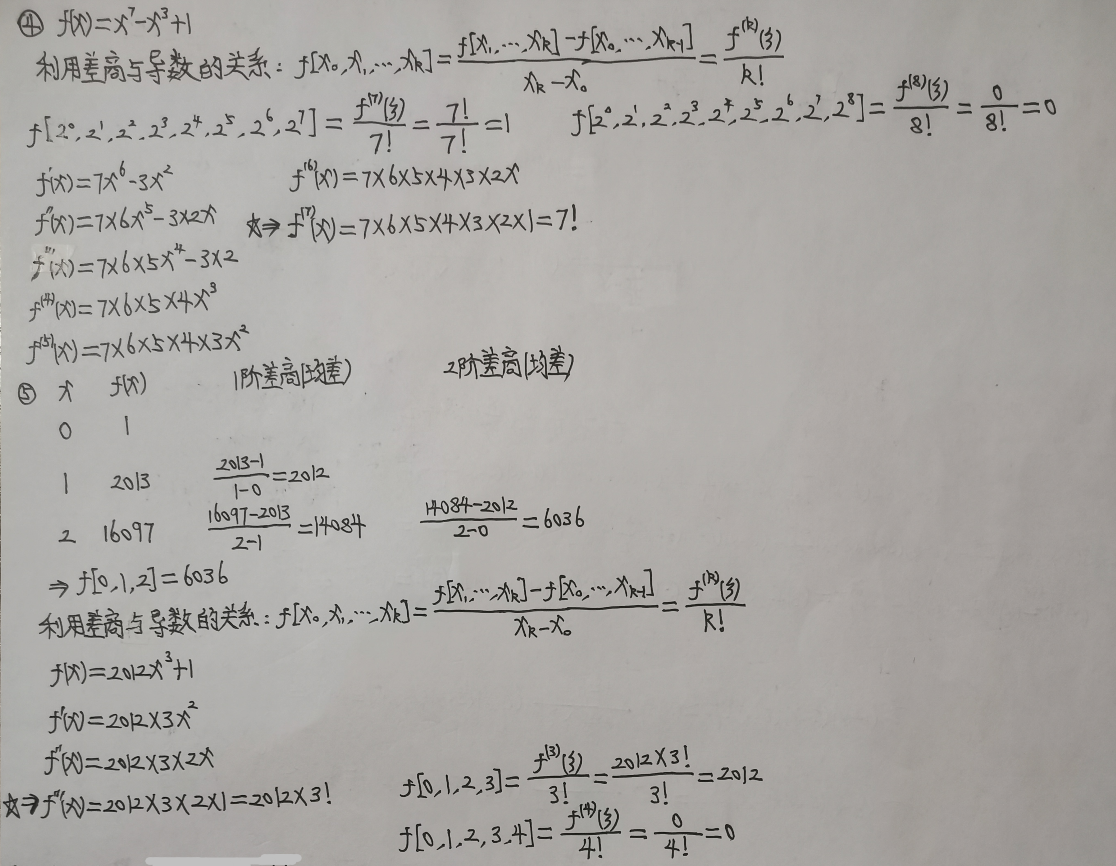 ④ f(x)=x⁷-x³+1
利用差商与导数的关系: f[x₀,x₁,⋯,xₖ]=(f[x₁,⋯,xₖ]-f[x₀,⋯,xₖ₋₁])/(xₖ-x₀)=f⁽ᵏ⁾(ξ)/k!
f[2⁰,2¹,2²,2³,2⁴,2⁵,2⁶,2⁷]=f⁽⁷⁾(ξ)/7!=7!/7!=1 f[2⁰,2¹,2²,2³,2⁴,2⁵,2⁶,2⁷,2⁸]=f⁽⁸⁾(ξ)/8!=0/8!=0
f'(x)=7x⁶-3x² f⁽⁶⁾(x)=7×6×5×4×3×2x
f''(x)=7×6x⁵-3×2x ☆⇒f⁽⁷⁾(x)=7×6×5×4×3×2×1=7!
f'''(x)=7×6×5x⁴-3×2
f⁽⁴⁾(x)=7×6×5×4x³
f⁽⁵⁾(x)=7×6×5×4×3x²
⑤ x f(x) 1阶差商(均差) 2阶差商(均差)
0 1
1 2013 (2013-1)/(1-0)=2012
2 16097 (16097-2013)/(2-1)=14084 (14084-2012)/(2-0)=6036
⇒f[0,1,2]=6036
利用差商与导数的关系: f[x₀,x₁,⋯,xₖ]=(f[x₁,⋯,xₖ]-f[x₀,⋯,xₖ₋₁])/(xₖ-x₀)=f⁽ᵏ⁾(ξ)/k!
f(x)=2012x³+1
f'(x)=2012×3x²
f''(x)=2012×3×2x
☆⇒f'''(x)=2012×3×2×1=2012×3! f[0,1,2,3]=f⁽³⁾(ξ)/3!=2012×3!/3!=2012
f[0,1,2,3,4]=f⁽⁴⁾(ξ)/4!=0/4!=0